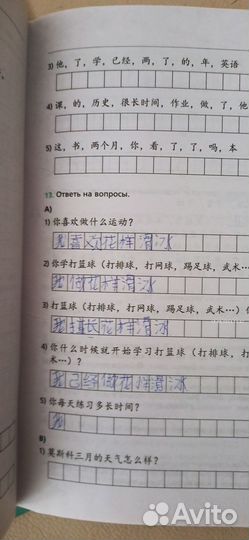 3) 他,了,学,已经,两,了,的,年,英语
4) 课,的,历史,很长时间,作业,做,了,他
5) 这,书,两个月,你,看,了,了,吗,本
13. Ответь на вопросы.
А)
1) 你喜欢做什么运动?
我喜欢花样滑冰
2) 你学打篮球(打排球,打网球,踢足球,武术…
我 花样滑冰
3) 打篮球(打排球,打网球,踢足球,武术…)
我擅长花样滑冰
4) 你什么时候就开始学习打篮球(打排球,打
术…)?
我已经 花样滑冰
5) 你每天练习多长时间?
我
В)
1) 莫斯科三月的天气怎么样?
Avito